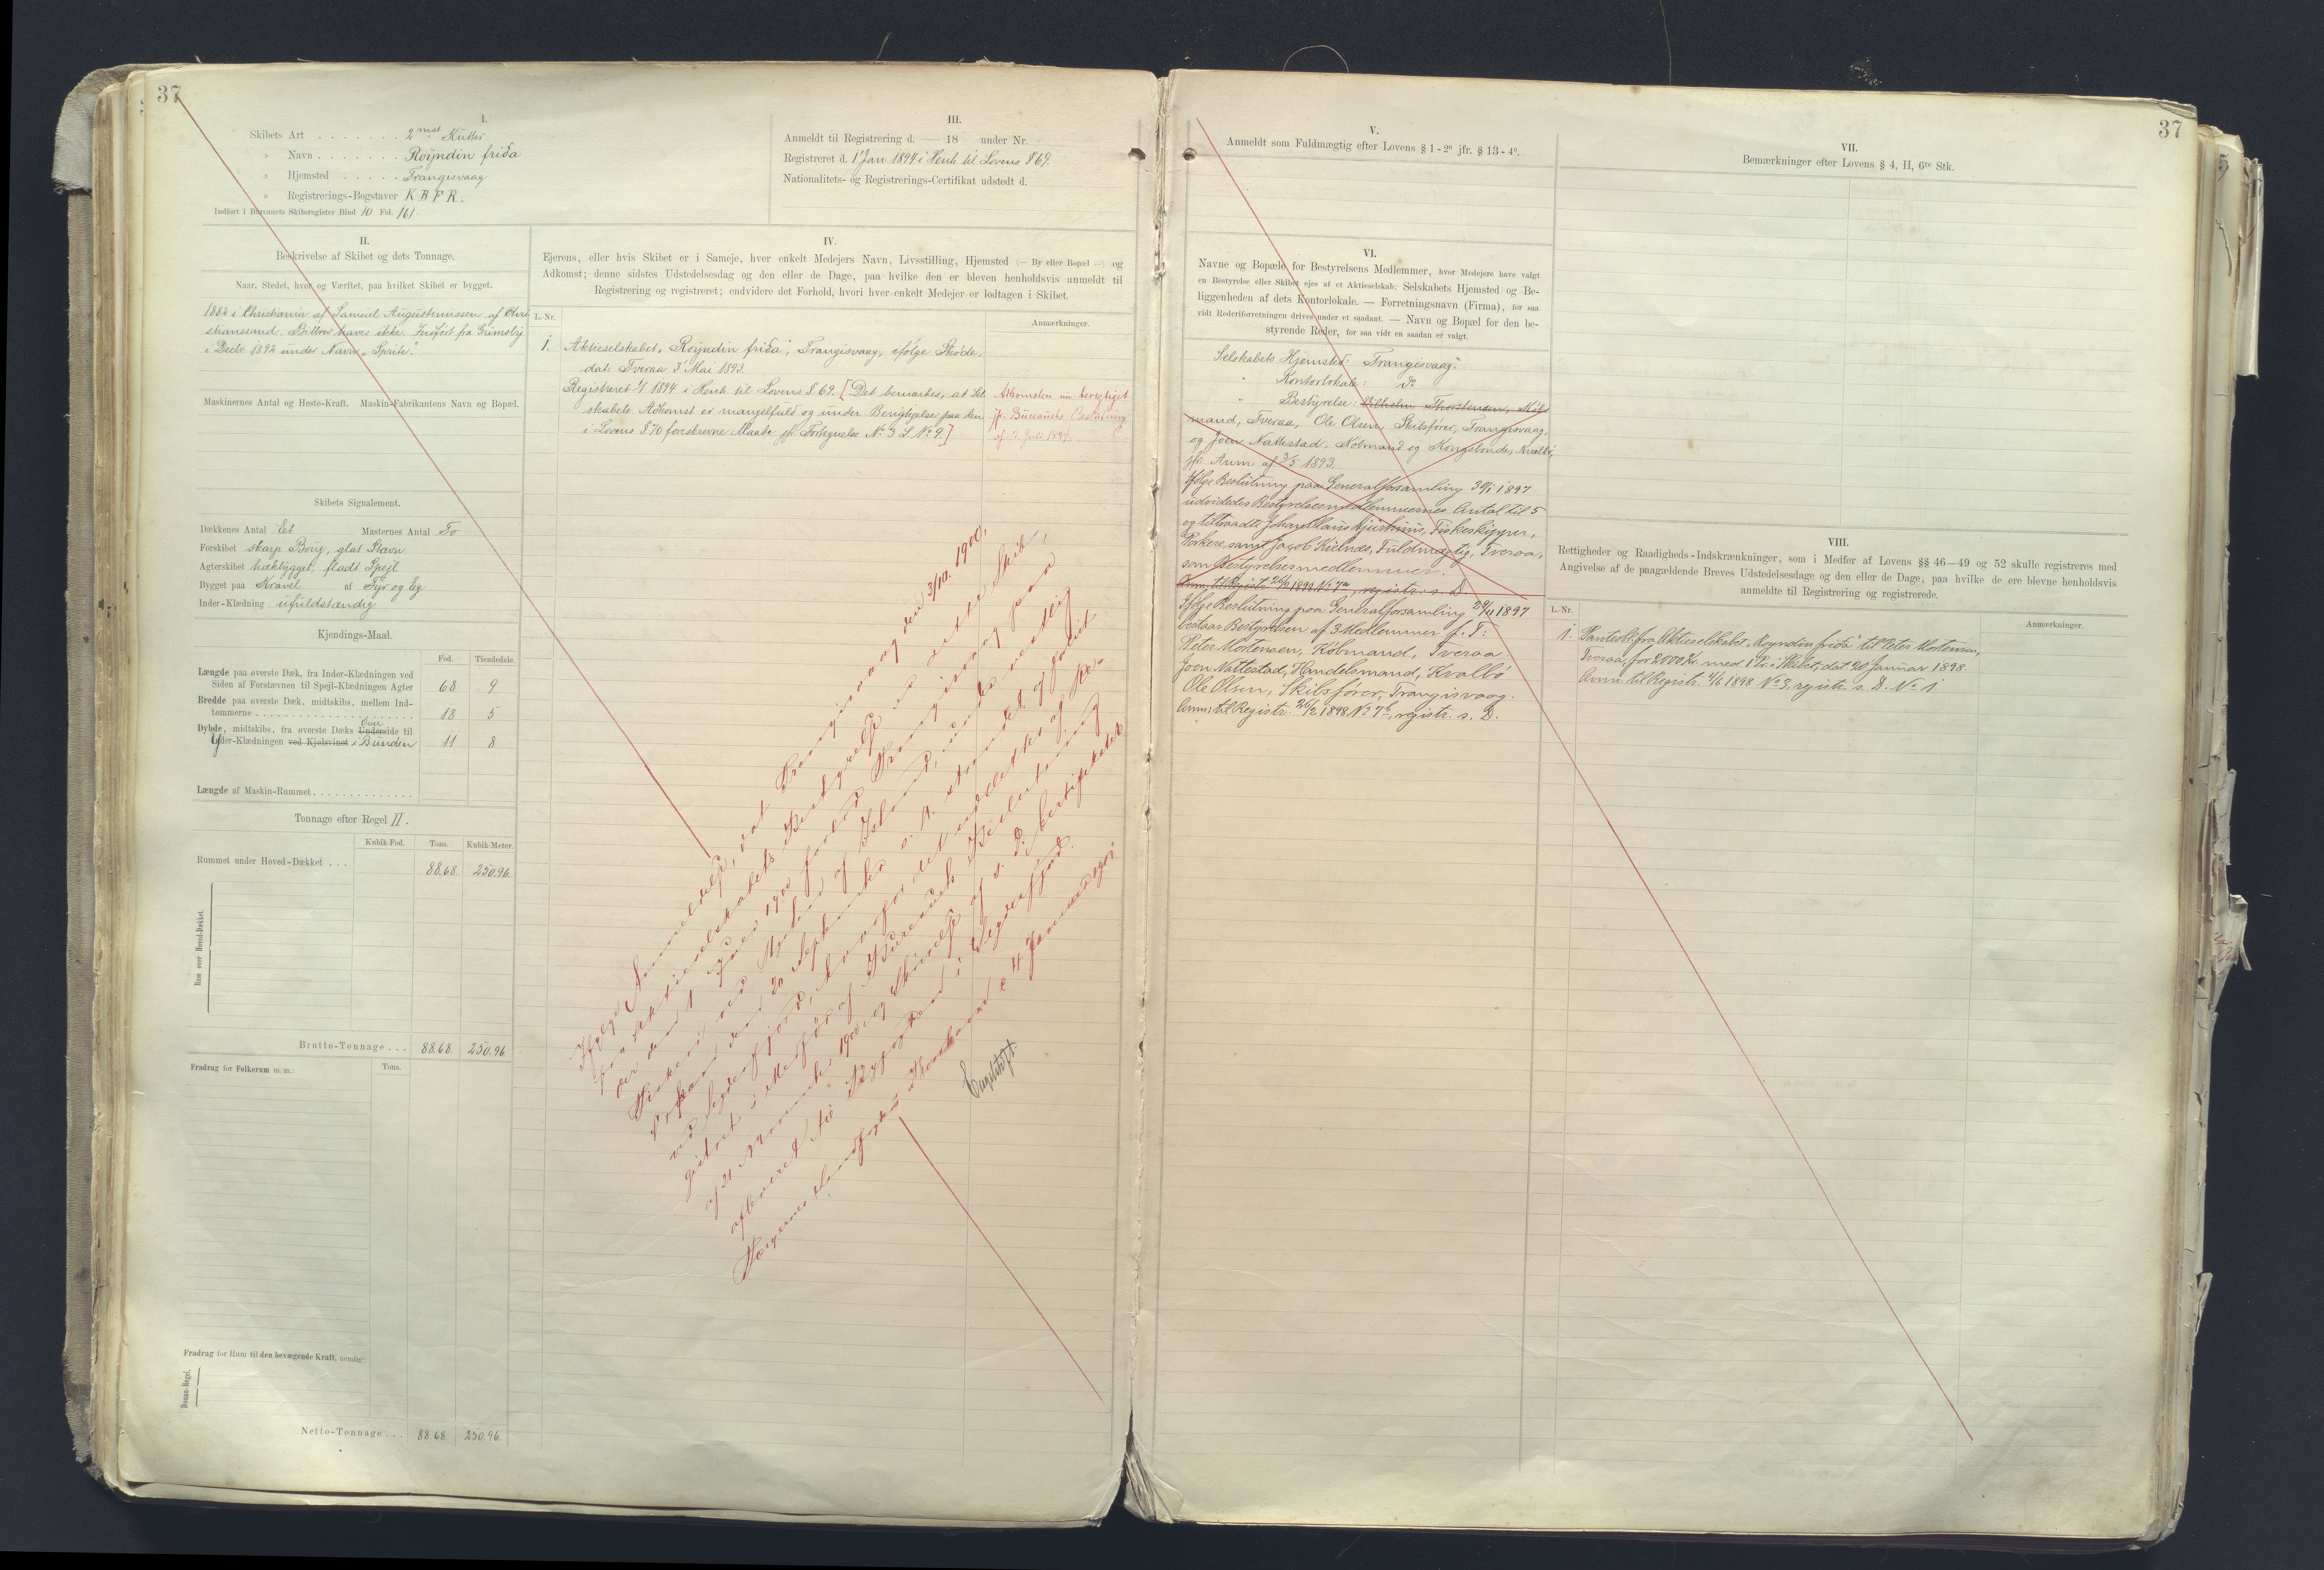 37
I.
Skibets Art . . . . . . . 2mst Kutter
" Navn . . . . . . . Royndin friða
" Hjemsted . . . . . Trangisvaag
" Registrerings-Bogstaver K B F R.
Indført i Bureauets Skibsregister Bind 10 Fol. 161.
III.
Anmeldt til Registrering d. — 18 under Nr.
Registreret d. 1 Jan 1894 i Henh. til Lovens § 69.
Nationalitets- og Registrerings-Certifikat udstedt d.
II.
Beskrivelse af Skibet og dets Tonnage.
Naar, Stedet, hvor og Værftet, paa hvilket Skibet er bygget.
1882 i Christiania af Samuel Augustinussen af Chri
stianssand. Bilbrev haves ikke. Indført fra Grimsby
i Decbr 1892 under Navn „Sprite".
Maskinernes Antal og Heste-Kraft. Maskin-Fabrikantens Navn og Bopæl.
Skibets Signalement.
Dækkenes Antal Et Masternes Antal To
Forskibet skarp Boug, glat Stavn
Agterskibet hækbygget, fladt Spejl
Bygget paa Kravel af Fyr og Eg
Inder-Klædning ufuldstændig
Kjendings-Maal.
Fod. Tiendedele.
Længde paa øverste Dæk, fra Inder-Klædningen ved
Siden af Forstævnen til Spejl-Klædningen Agter 68 9
Bredde paa øverste Dæk, midtskibs, mellem Ind-
tømmerne . . . . . . . . 18 5
Dybde, midtskibs, fra øverste Dæks Underside til
Yder-Klædningen ved Kjølsvinet i Bunden 11 8
Længde af Maskin-Rummet . . . . . . . .
Tonnage efter Regel II.
Kubik Fod. Tons. Kubik Meter.
Rummet under Hoved-Dækket . . . 88.68 250.96.
Rum over Hoved-Dækket.
Brutto-Tonnage . . . 88.68 250.96
Fradrag for Folkerum m. m.: Tons.
Fradrag for Rum til den bevægende Kraft, nemlig:
Donau-Regel.
Netto-Tonnage . . . 88 68 250.96.
IV.
Ejerens, eller hvis Skibet er i Sameje, hver enkelt Medejers Navn, Livsstilling, Hjemsted (— By eller Bopæl —) og
Adkomst; denne sidstes Udstedelsesdag og den eller de Dage, paa hvilke den er bleven henholdsvis anmeldt til
Registrering og registreret; endvidere det Forhold, hvori hver enkelt Medejer er lodtagen i Skibet.
L.-Nr. Anmærkninger.
1. Aktieselskabet „Royndin friða", Trangisvaag, ifølge Skjøde,
dat. Tveraa 3 Mai 1893.
Registreret 1/1 1894 i Henh. til Lovens § 69. [Det bemærkes, at Sel
skabets Adkomst er mangelfuld og under Berigtigelse paa den
i Lovens § 70 foreskrevne Maade jfr. Fortegnelse No 3 L No 9.]
Adkomsten nu berigtiget
jfr. Bureauets Beslutning
af 7. Juli 1894.
Ifølge Anmeldelse, dat Trangisvaag den 3/10. 1900,
fra Aktieselskabets Bestyrelse er dette Skib,
der den 1 Juni 1900 forlod Trangisvaag paa
Fiskeri ved Nordland af Island,
den 20 September s. A. strandet
i Medfør af Bureauets Beslutning
af 21 November 1900
Færøernes Landfogderi, Thorshavn d. 4 Januar 1901.
37
V.
Anmeldt som Fuldmægtig efter Lovens § 1 - 2º jfr. § 13 - 4º.
VI.
Navne og Bopæle for Bestyrelsens Medlemmer, hvor Medejere have valgt
en Bestyrelse eller Skibet ejes af et Aktieselskab; Selskabets Hjemsted og Be-
liggenheden af dets Kontorlokale. — Forretningsnavn (Firma), for saa
vidt Rederiforretningen drives under et saadant. — Navn og Bopæl for den be-
styrende Reder, for saa vidt en saadan er valgt.
Selskabets Hjemsted: Trangisvaag.
" Kontorlokale: do
" Bestyrelse: Vilhelm Thorstensen, Køb
mand, Tveraa, Ole Olsen, Skibsfører, Trangisvaag,
og Joen Nattestad, Købmand og Kongsbonde, Kvalbø,
jfr. Anm. af 3/5 1893.
Ifølge Beslutning paa Generalforsamling 30/1 1897
udvidedes Bestyrelsesmedlemmernes Antal til 5
og tiltraadte Johan Claus Kjustinus, Fiskeskipper,
Porkere, samt Jacob Kielnæs, Fuldmægtig, Tveraa,
som Bestyrelsesmedlemmer.
Anm. til Registr. 26/2 1898 No 7a, registr. s. D.
Ifølge Beslutning paa Generalforsamling 29/11 1897
bestaar Bestyrelsen af 3 Medlemmer f. T:
Peter Mortensen, Købmand, Tveraa
Joen Nattestad, Handelsmand, Kvalbø
Ole Olsen, Skibsfører, Trangisvaag.
Anm. til Registr. 26/2 1898 No 7b, registr. s. D.
VII.
Bemærkninger efter Lovens § 4, II, 6te Stk.
VIII.
Rettigheder og Raadigheds-Indskrænkninger, som i Medfør af Lovens §§ 46—49 og 52 skulle registreres med
Angivelse af de paagældende Breves Udstedelsesdage og den eller de Dage, paa hvilke de ere blevne henholdsvis
anmeldte til Registrering og registrerede.
L.-Nr. Anmærkninger.
1. Pantebr. fra Aktieselskabet „Royndin friða" til Peter Mortensen,
Tveraa, for 2000 Kr. med 1 Pr. i Skibet, dat. 20 Januar 1898.
Anm. til Registr. 4/6 1898 No 3, registr. s. D. No 1